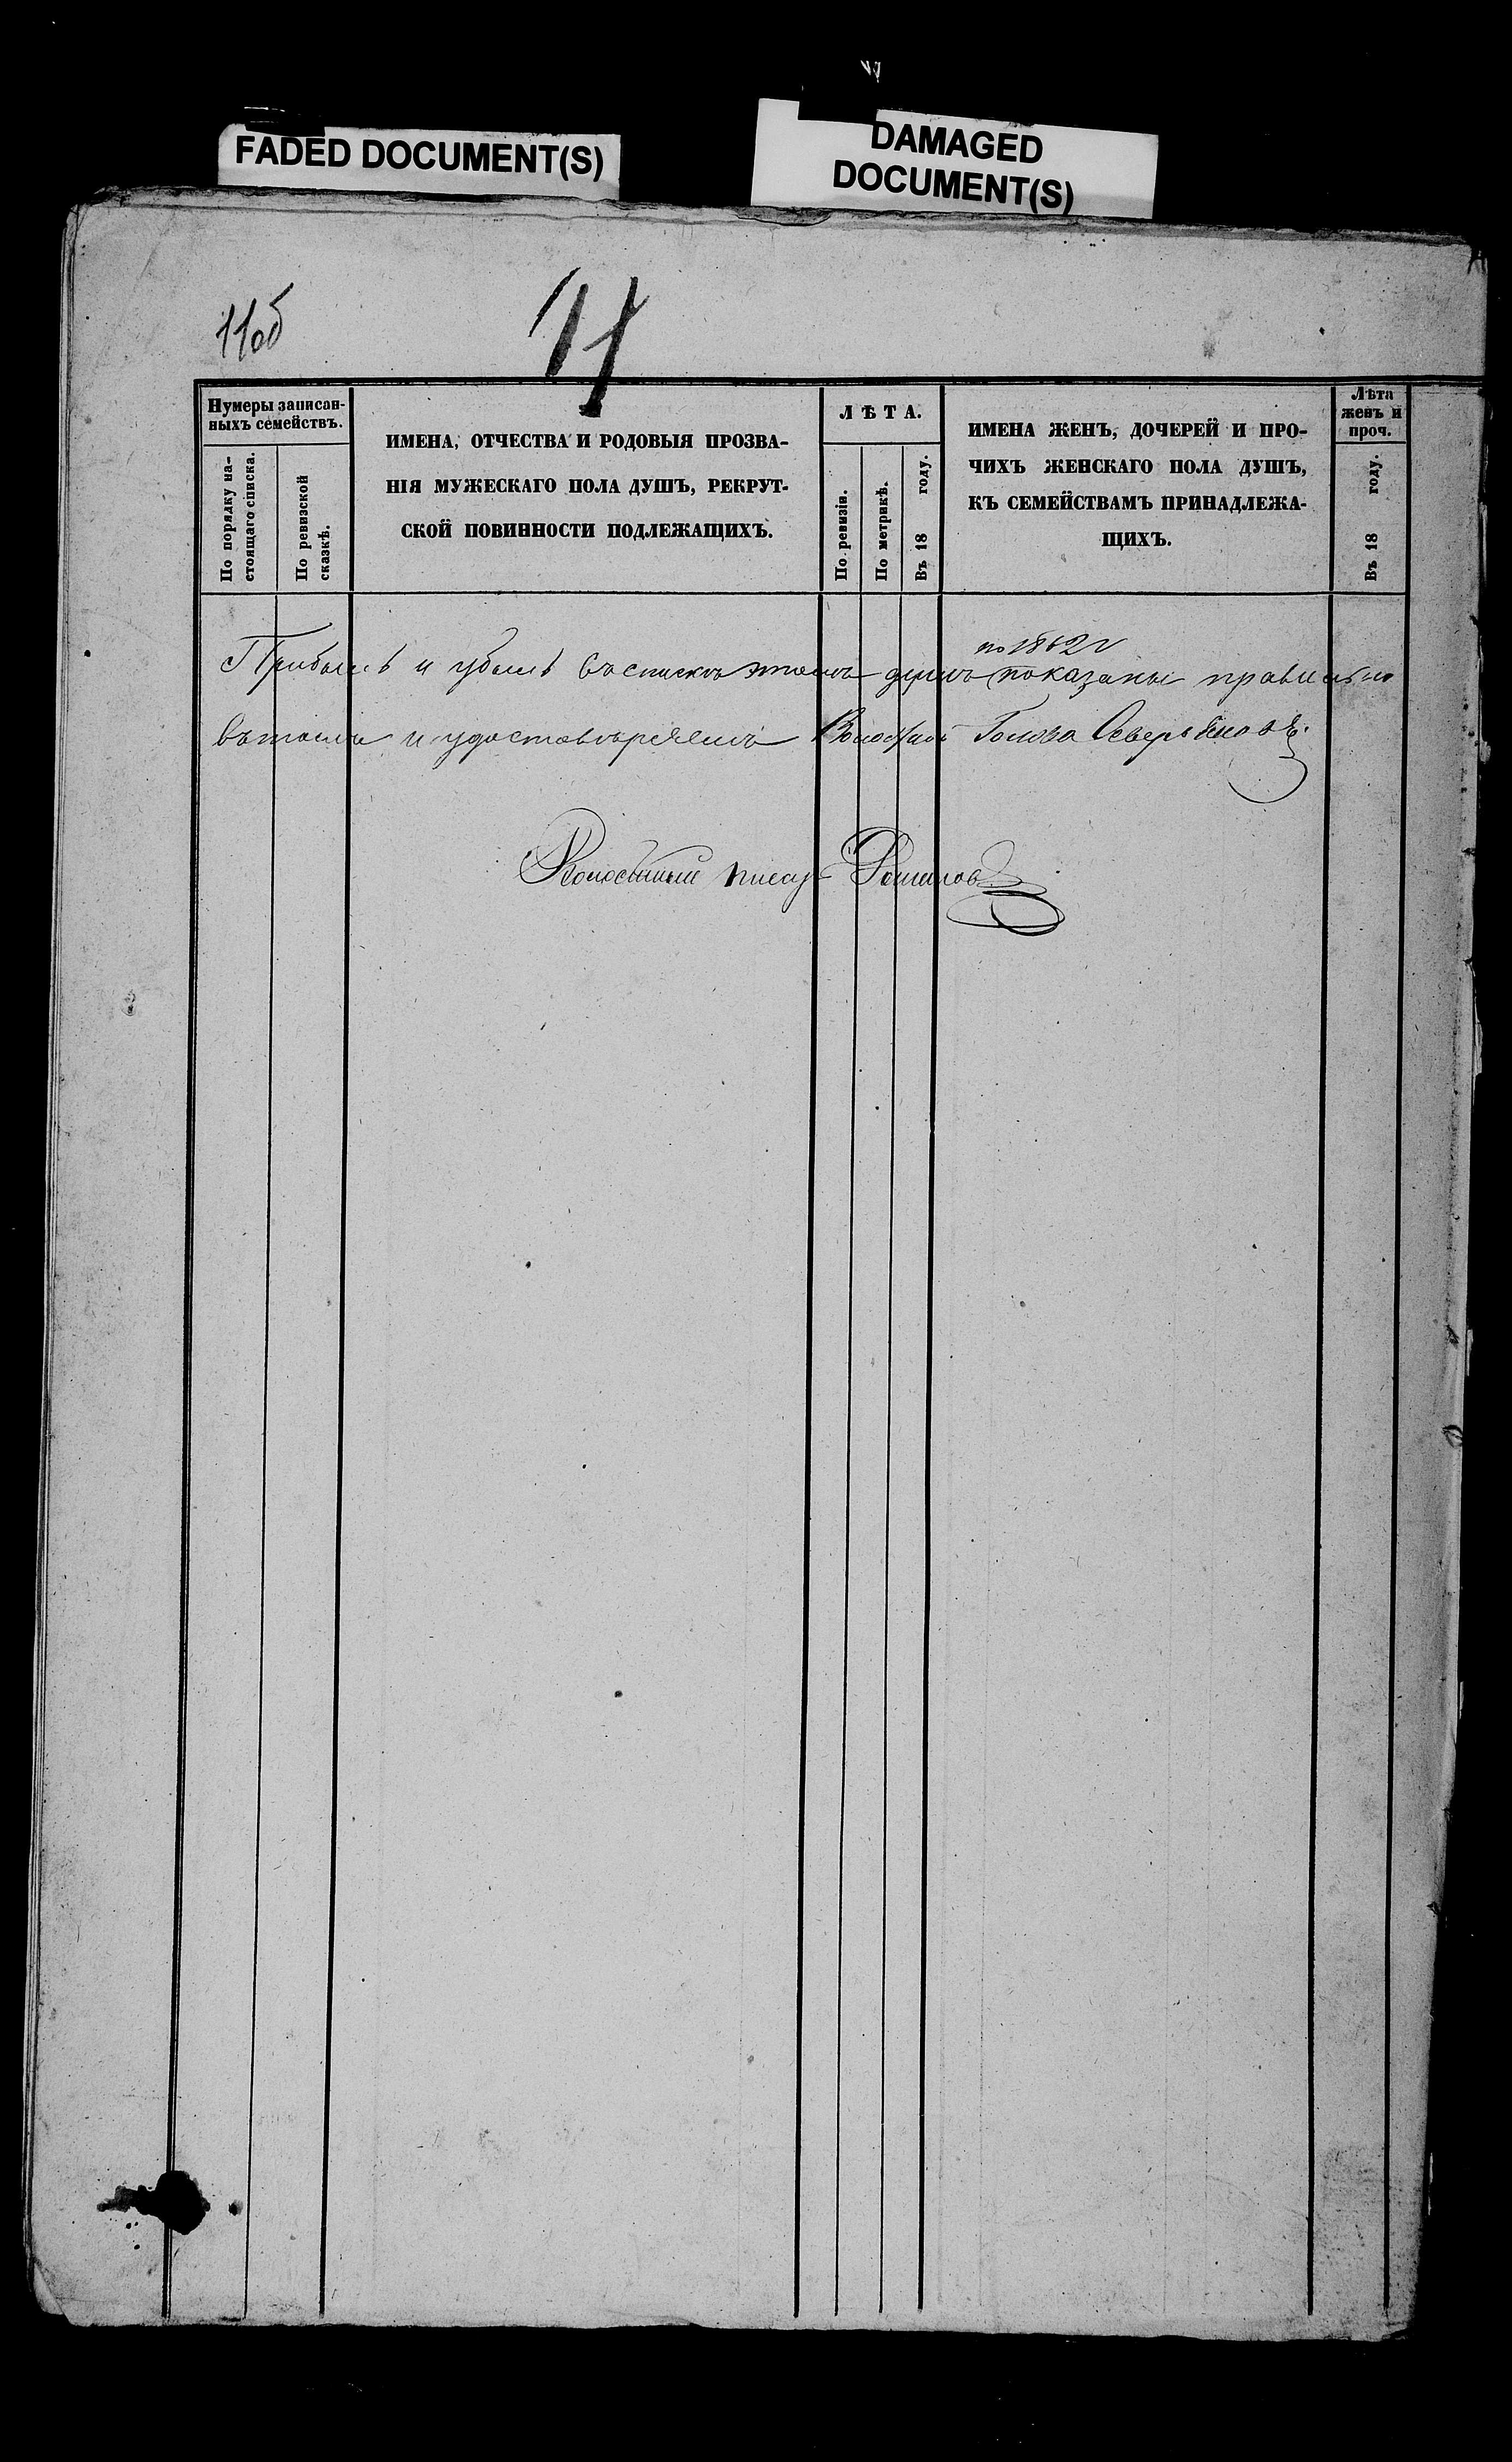 FADED DOCUMENT(S)
DAMAGED
DOCUMENT(S)
11об
11
Нумеры записан-
ныхъ семействъ.
По порядку на-
стоящаго списка.
По ревизской
сказкѣ.
ИМЕНА, ОТЧЕСТВА И РОДОВЫЯ ПРОЗВА-
НІЯ МУЖЕСКАГО ПОЛА ДУШЪ, РЕКРУТ-
СКОЙ ПОВИННОСТИ ПОДЛЕЖАЩИХЪ.
ЛѢТА.
По ревизіи.
По метрикѣ.
Въ 18 году.
ИМЕНА ЖЕНЪ, ДОЧЕРЕЙ И ПРО-
ЧИХЪ ЖЕНСКАГО ПОЛА ДУШЪ,
КЪ СЕМЕЙСТВАМЪ ПРИНАДЛЕЖА-
ЩИХЪ.
Лѣта
женъ и
проч.
Въ 18 году.
по 1862 г
Прибыль и убыль въ списке этомъ душъ показаны правильно
въ томъ и удостовѣряемъ Волостной Голова
Волостный писарь